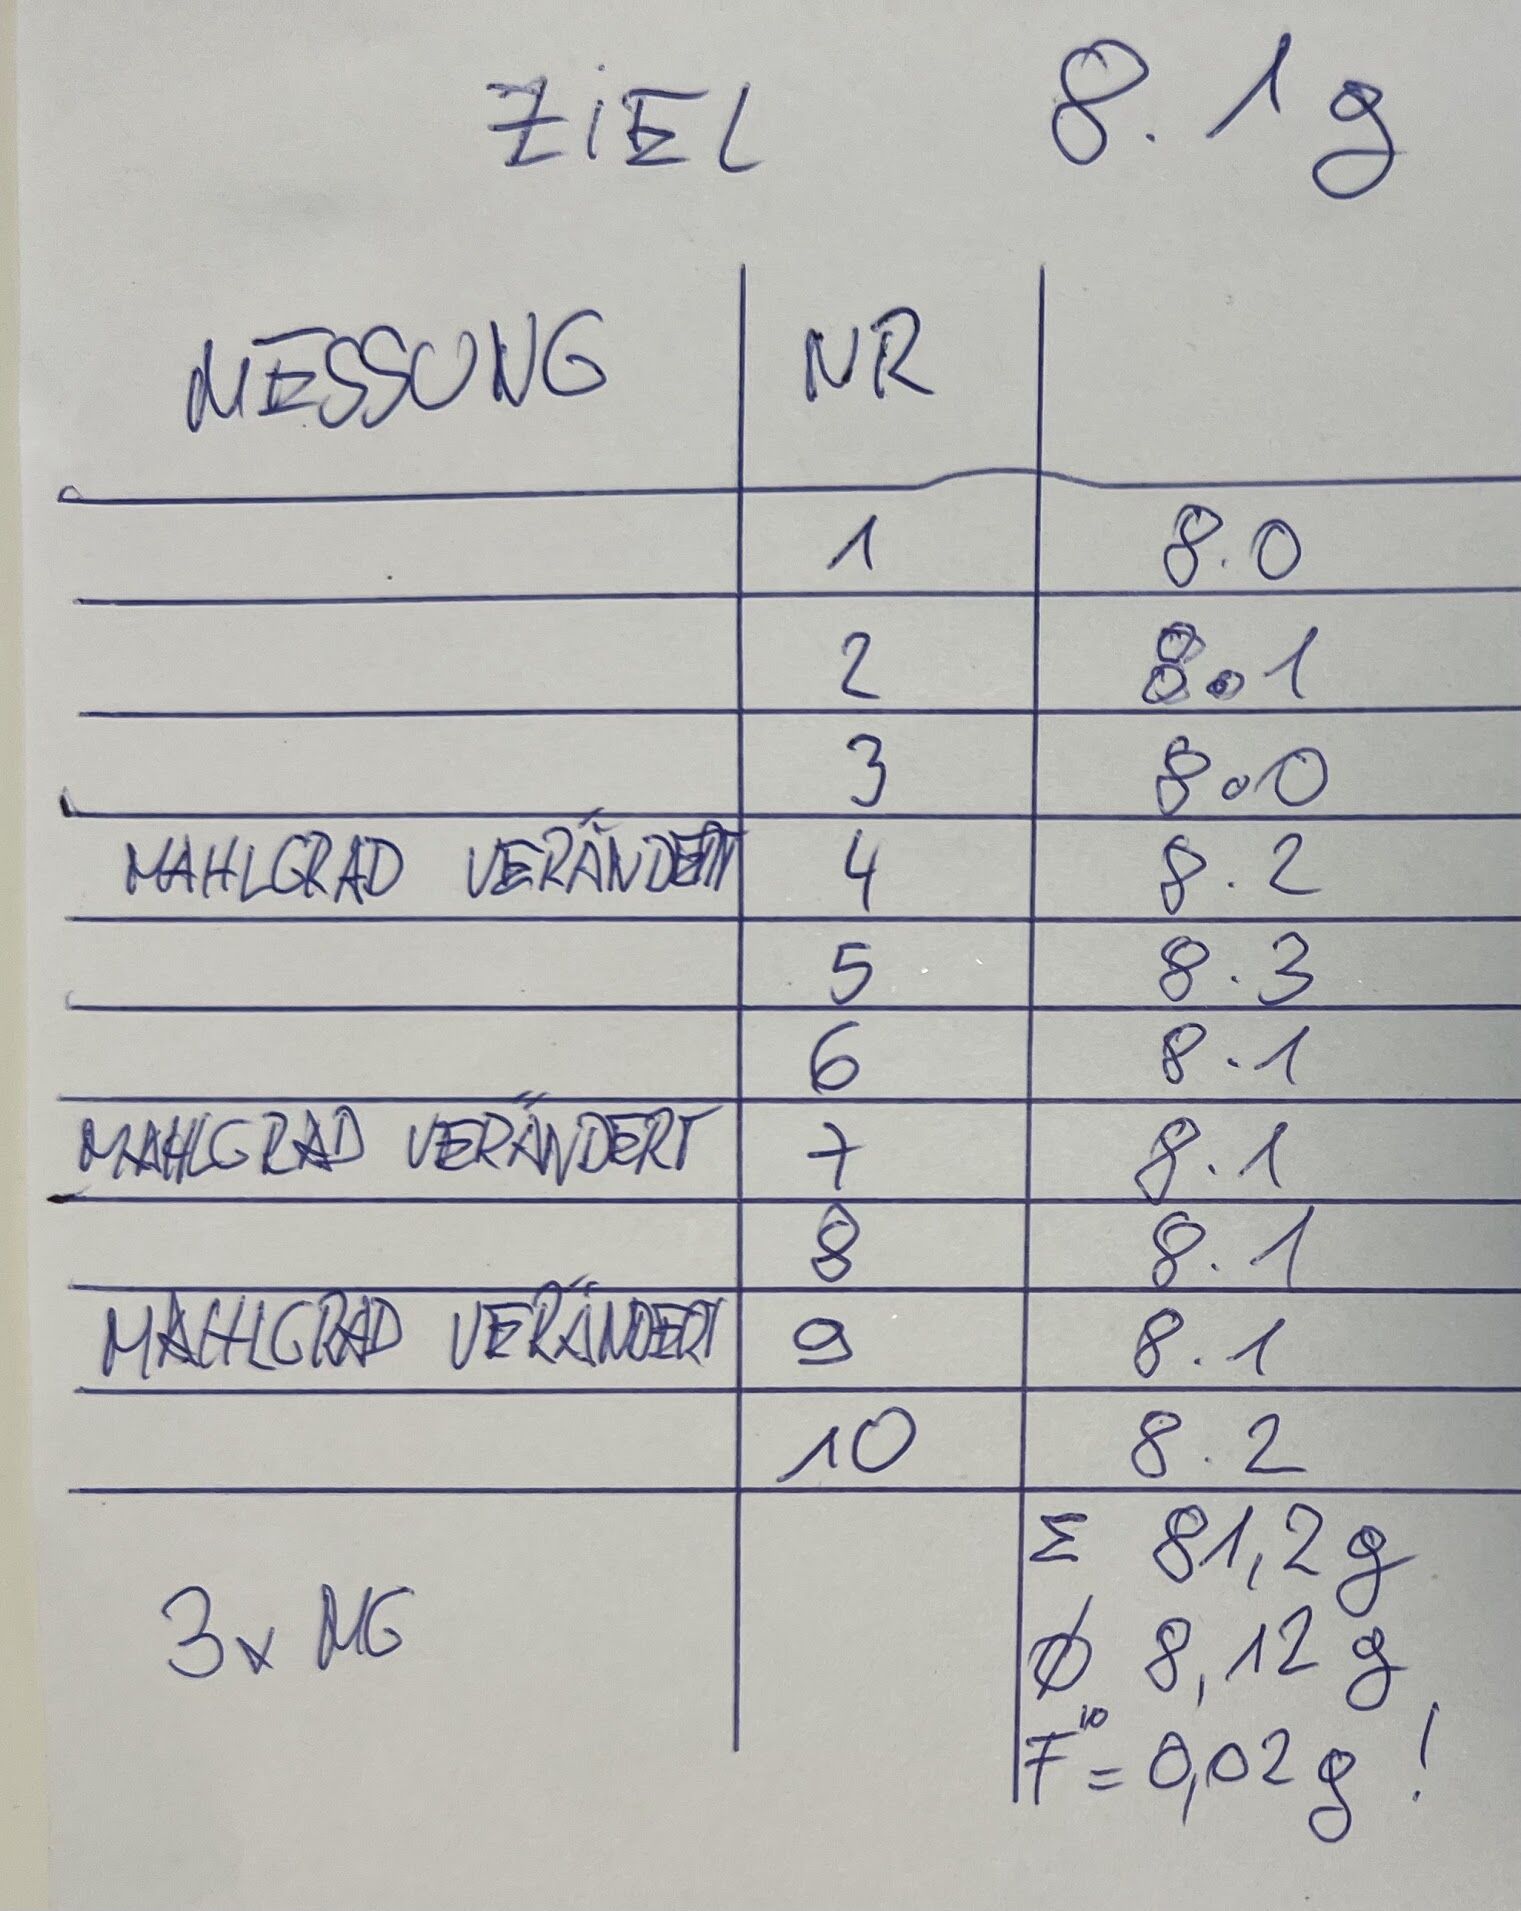 ZiEL 8.1g
MESSUNG NR
1 8.0
2 8.1
3 8.0
MAHLGRAD VERÄNDERT 4 8.2
5 8.3
6 8.1
MAHLGRAD VERÄNDERT 7 8.1
8 8.1
MAHLGRAD VERÄNDERT 9 8.1
10 8.2
Σ 81,2g
3x MG
Ø 8,12g
F¹⁰ = 0,02g !